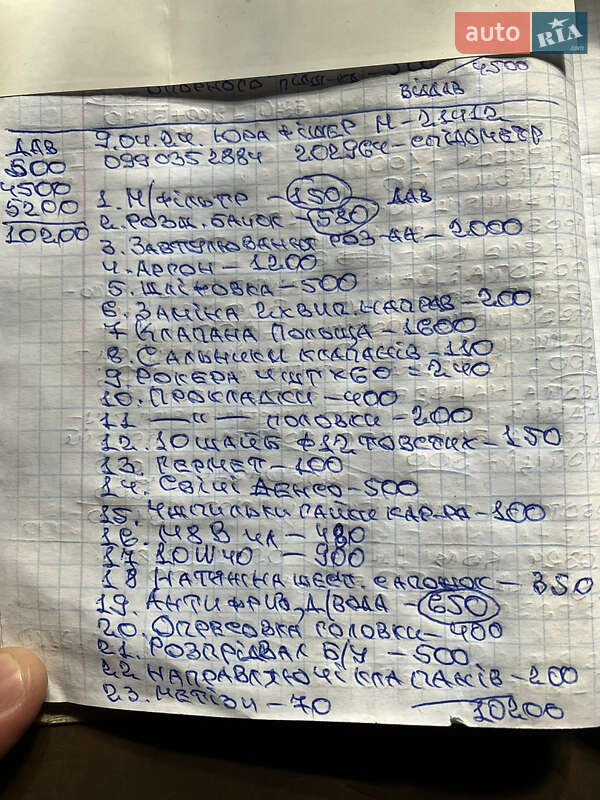 auto RIA.com
опорного підш-ка - 4500
Віддав
9.04.24. Юра Фішер М-21412
0990352884 202964-спідометр
ДАВ
500
4500
5200
10200
1. М/фільтр - 150 ДАВ
2. Розш. бачок - 580
3. Завтулювання роз-ла - 2000
4. Аргон - 1200
5. Шліфовка - 500
6. Заміна 2х вип. направ - 200
7 Клапана Польща - 1600
8. Сальники клапанів - 110
9. Рокера 4шт х 60 = 240
10. Прокладки - 400
11 —"— головки - 200
12. 10 шайб Ф12 товстих - 150
13. Гермет - 100
14. Свічі Денсо - 500
15. 4 шпильки гайки кар-ра - 100
16. М8В чл - 480
17. 10W40 - 900
18 Натяжна шест. сапожок - 350
19. Антифриз, Д/вода - 650
20. Опресовка головки - 400
21. Розпрідвал Б/У - 500
22. Направляючі клапанів - 200
23. Метізи - 70
10200